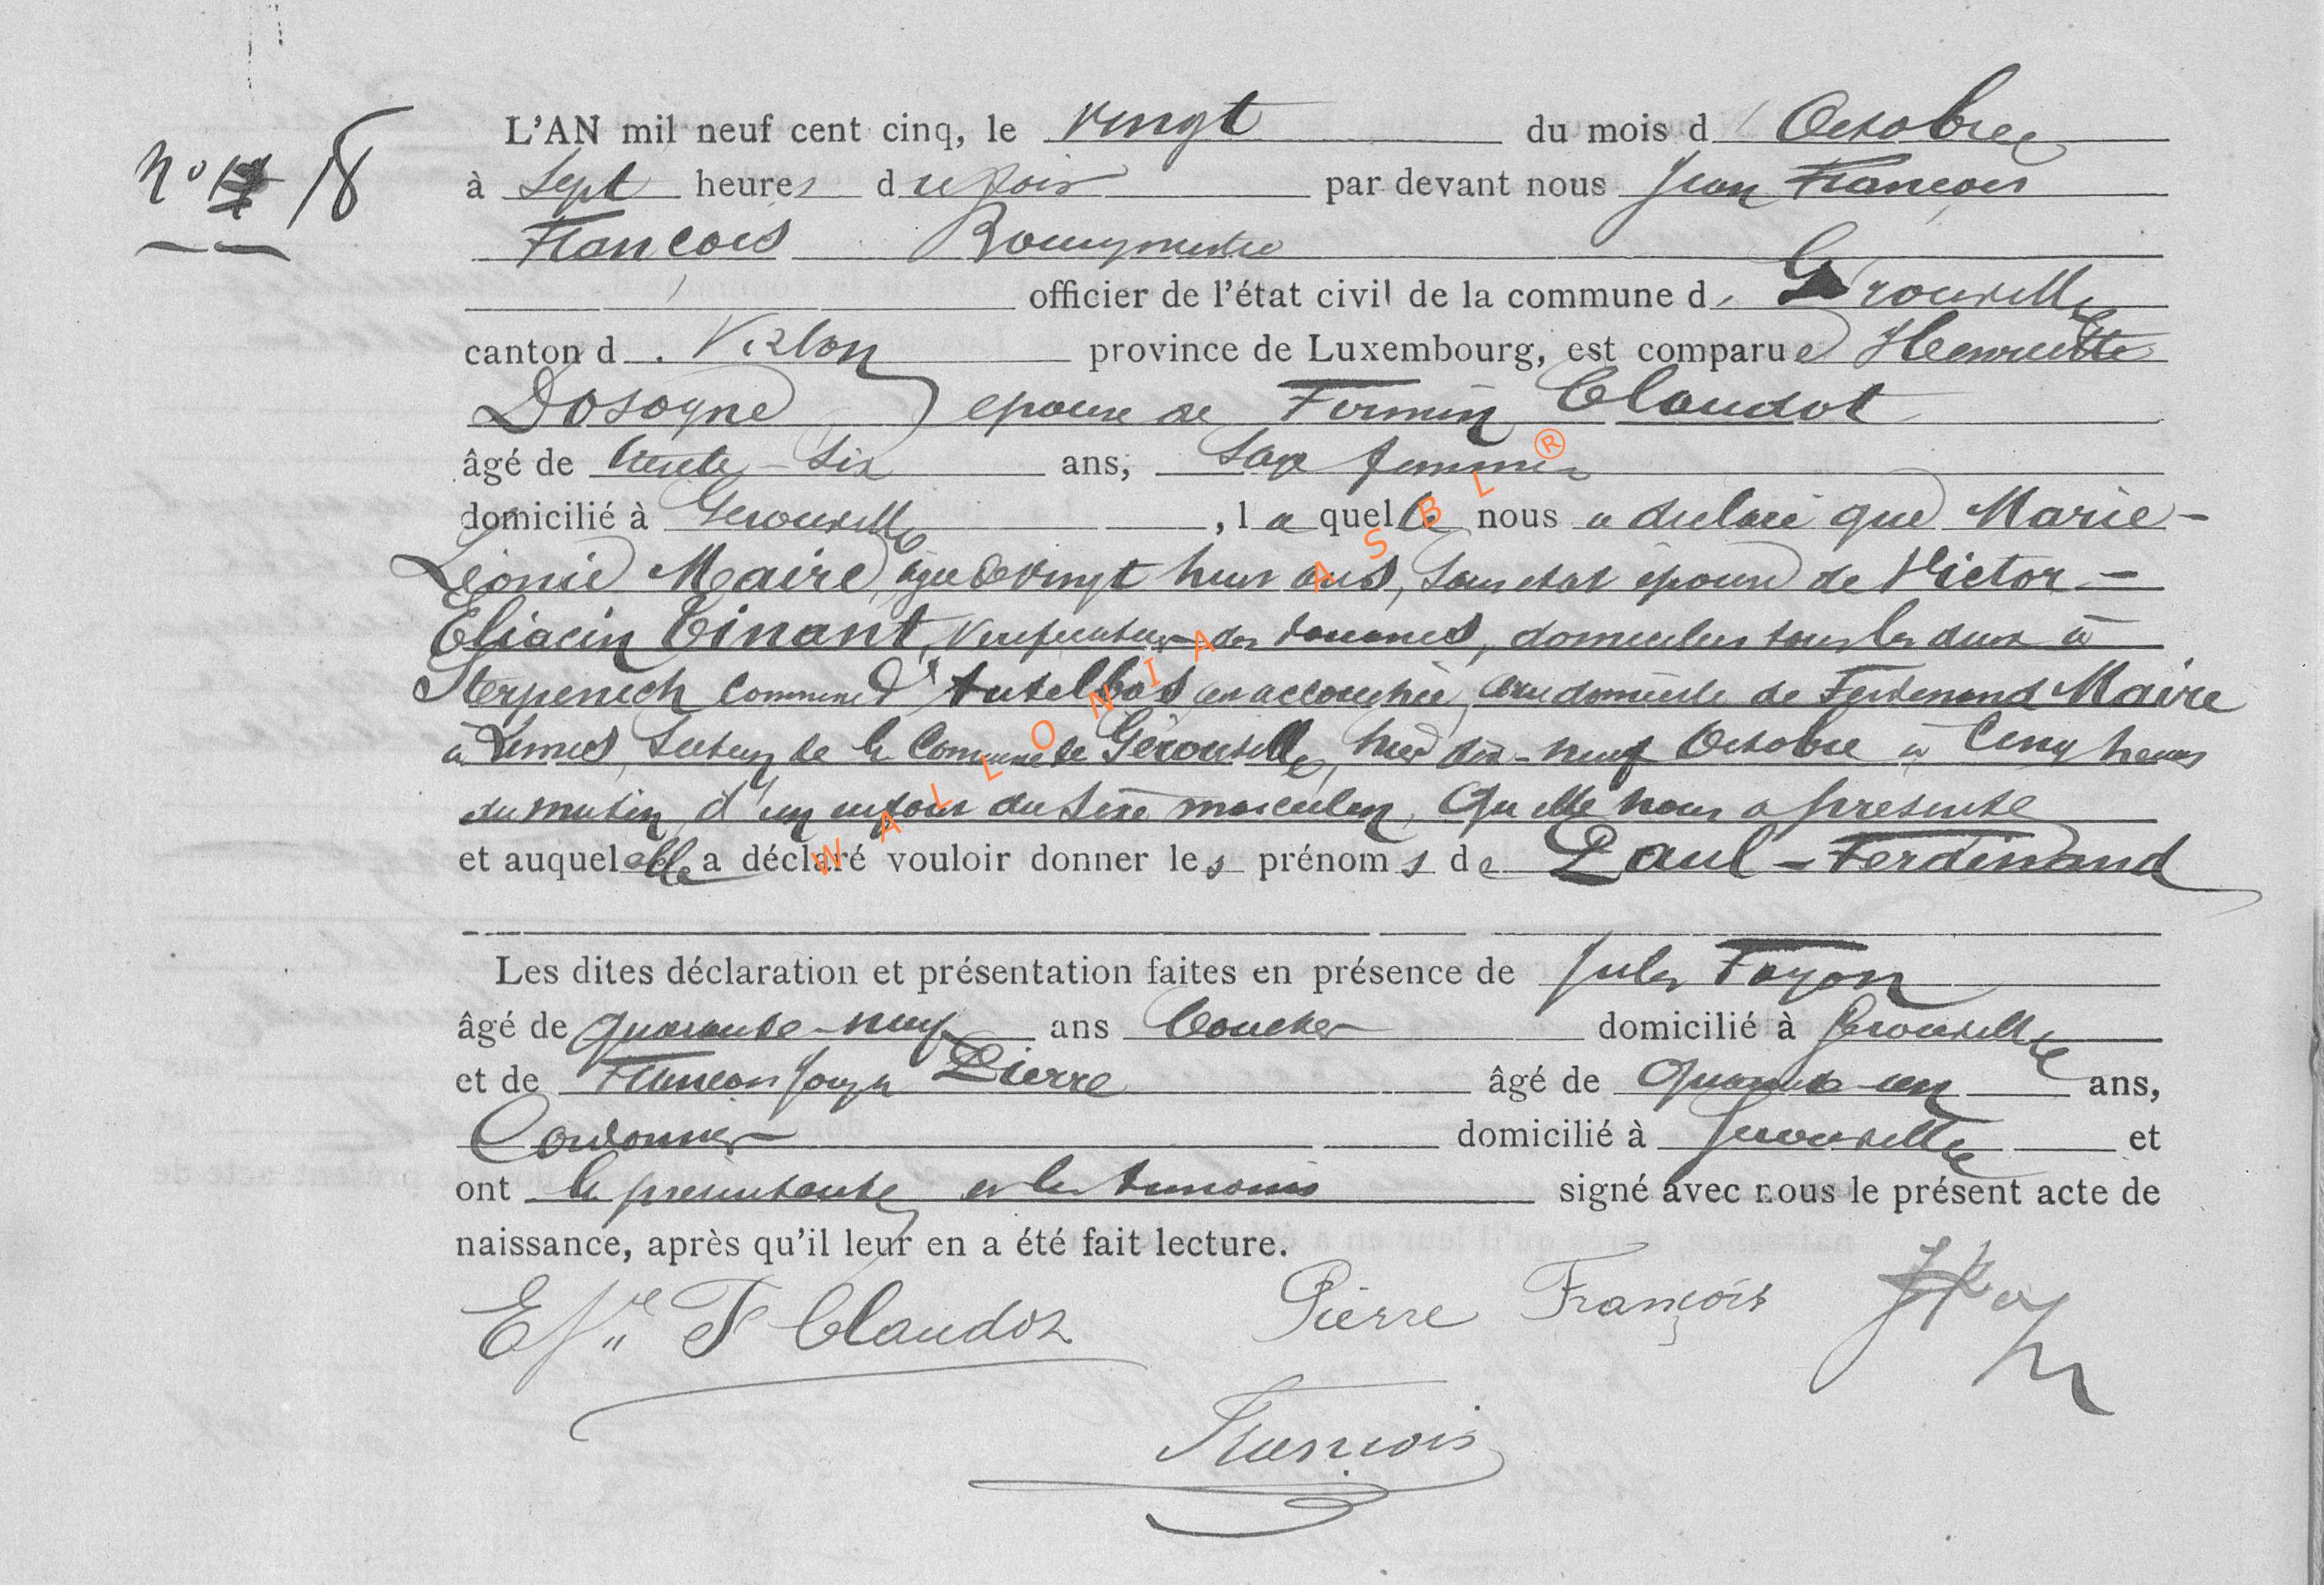 L'AN mil neuf cent cinq, le vingt du mois d'Octobre
No 18
à Sept heures du soir par devant nous Jean François
François Bourgmestre
officier de l'état civil de la commune de Gérouville
canton de Virton province de Luxembourg, est comparue Henriette
Dosogne épouse de Firmin Claudot
âgé de trente-six ans, Sage femme
domicilié à Gérouville, laquelle nous a déclaré que Marie-
Léonie Maire, âgée de vingt huit ans, Sans état épouse de Victor-
Eliacin Tinant, Vérificateur des douanes, domiciliés tous les deux à
Sterpenich commune d'Autelbas est accouchée, au domicile de Ferdinand Maire
à Limes, Section de la Commune de Gérouville, hier dix-neuf Octobre à Cinq heures
du matin, d'un enfant du sexe masculin, qu'elle nous a présenté
et auquel elle a déclaré vouloir donner les prénoms de Paul-Ferdinand
Les dites déclaration et présentation faites en présence de Jules Foyon
âgé de quarante-neuf ans boucher domicilié à Gérouville
et de François Joseph Pierre âgé de quarante un ans,
Cordonnier domicilié à Gérouville et
ont la présentante et les témoins signé avec nous le présent acte de
naissance, après qu'il leur en a été fait lecture.
F Claudot Pierre François
François
WALLONIA ASBL ®